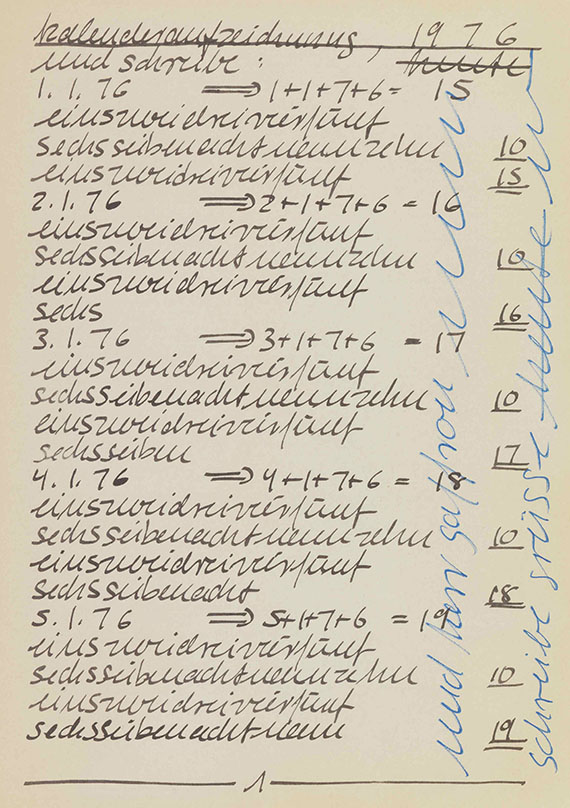 kalenderaufzeichnung, 1976
und schreibe: heute
1.1.76 ⟹ 1+1+7+6= 15
einszweidreivierfünf
sechssiebenachtneunzehn 10
einszweidreivierfünf 15
2.1.76 ⟹ 2+1+7+6 = 16
einszweidreivierfünf
sechssiebenachtneunzehn 10
einszweidreivierfünf
sechs 16
3.1.76 ⟹ 3+1+7+6 = 17
einszweidreivierfünf
sechssiebenachtneunzehn 10
einszweidreivierfünf
sechssieben 17
4.1.76 ⟹ 4+1+7+6 = 18
einszweidreivierfünf
sechssiebenachtneunzehn 10
einszweidreivierfünf
sechssiebenacht 18
5.1.76 ⟹ 5+1+7+6 = 19
einszweidreivierfünf
sechssiebenachtneunzehn 10
einszweidreivierfünf
sechssiebenachtneun 19
1
und herr
schreibe grüsse heute